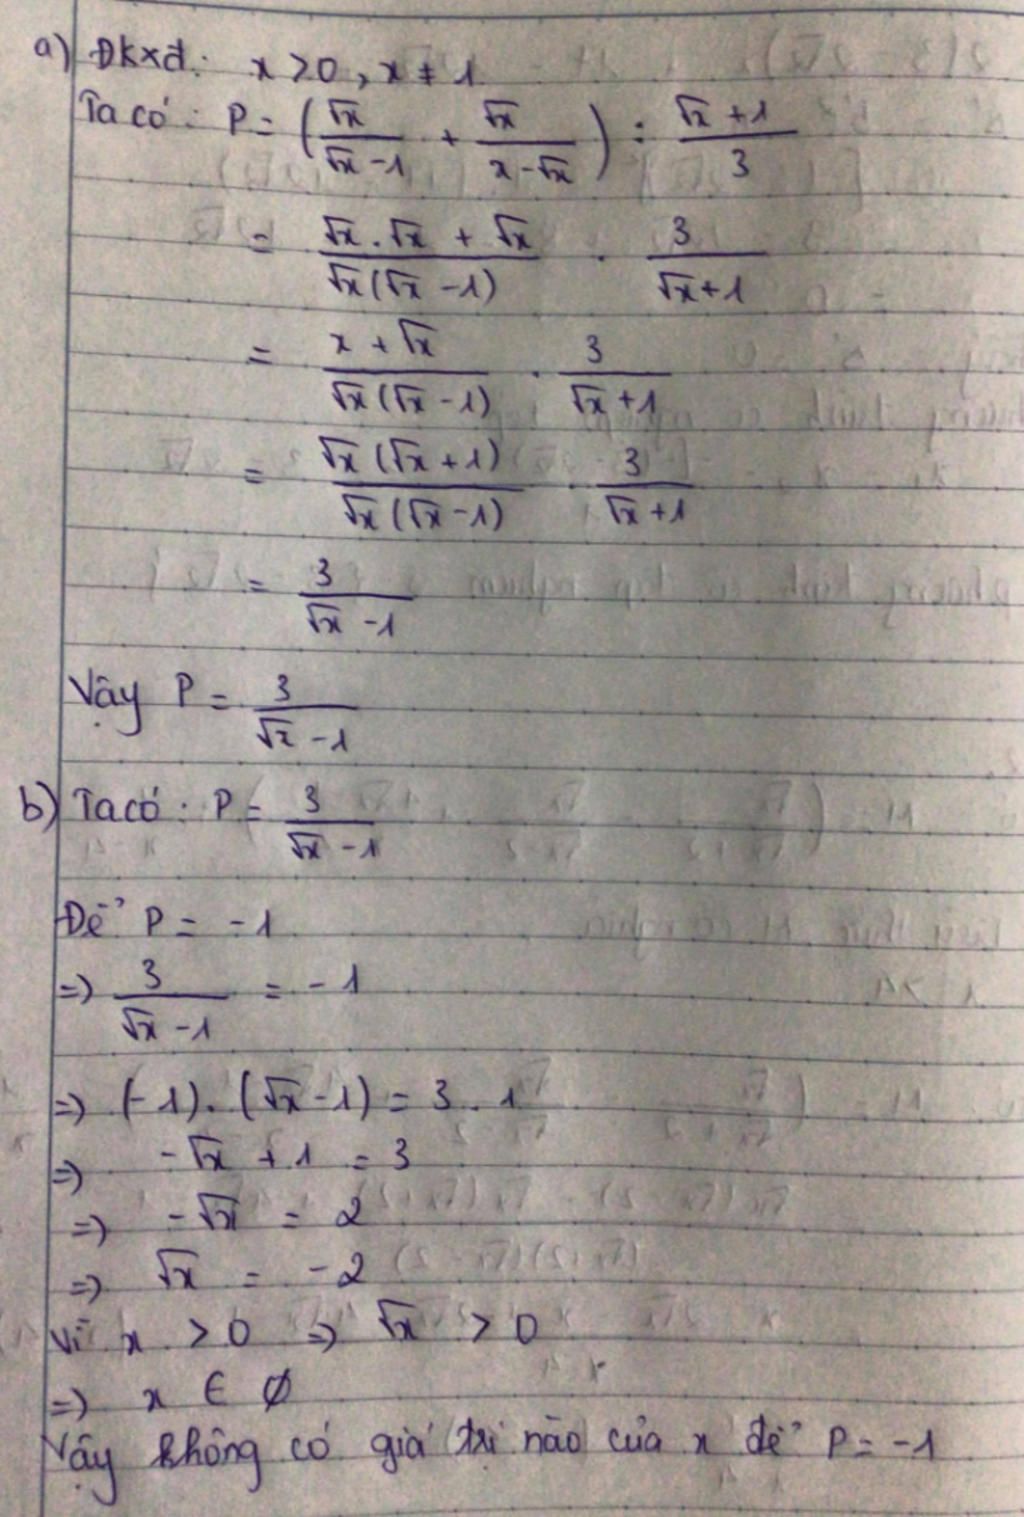 a) Đkxđ: x > 0, x ≠ 1
Ta có: P = (√x/(√x - 1) + √x/(x - √x)) : (√x + 1)/3
= (√x . √x + √x)/(√x(√x - 1)) . 3/(√x + 1)
= (x + √x)/(√x(√x - 1)) . 3/(√x + 1)
= (√x(√x + 1))/(√x(√x - 1)) . 3/(√x + 1)
= 3/(√x - 1)
Vậy P = 3/(√x - 1)
b) Ta có: P = 3/(√x - 1)
Để P = -1
=> 3/(√x - 1) = -1
=> (-1).(√x - 1) = 3 . 1
=> -√x + 1 = 3
=> -√x = 2
=> √x = -2
Vì x > 0 => √x > 0
=> x ∈ ∅
Vậy không có giá trị nào của x để P = -1